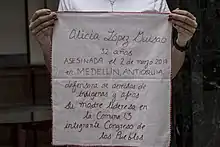 Alicia López Guisao
32 años
ASESINADA el 2 de marzo 2017
en MEDELLIN, ANTIOQUIA
defensora de derechos de
indígenas y afros
Su madre lideresa en
la Comuna 13
integrante Congreso de
los Pueblos